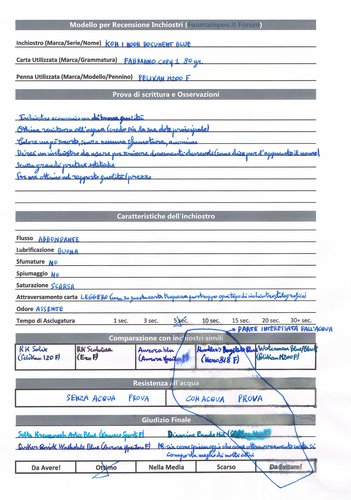 Modello per Recensione Inchiostri (Fountainpen.it Forum)
Inchiostro (Marca/Serie/Nome) KOH I NOOR DOCUMENT BLUE
Carta Utilizzata (Marca/Grammatura) FABRIANO COPY 1 80 gr.
Penna Utilizzata (Marca/Modello/Pennino) PELIKAN M200 F
Prova di scrittura e Osservazioni
Inchiostro economico ma di buona qualità
Ottima resistenza all'acqua (credo sia la sua dote principale)
Colore un po' smorto, senza nessuna sfumatura, anonimo
Direi un inchiostro da usare per scrivere documenti durevoli (come dice per l'appunto il nome)
Senza grandi pretese estetiche
Per me ottimo nel rapporto qualità/prezzo
Caratteristiche dell'inchiostro
Flusso ABBONDANTE
Lubrificazione BUONA
Sfumature NO
Spiumaggio NO
Saturazione SCARSA
Attraversamento carta LEGGERO (ma su questa carta trapassa purtroppo ogni tipo di inchiostro stilografico)
Odore ASSENTE
Tempo di Asciugatura 1 sec. 3 sec. 5 sec. 10 sec. 15 sec. 20 sec. 30+ sec.
PARTE INTERESSATA DALL'ACQUA
Comparazione con inchiostri simili
R&K Salix R&K Scabiosa Aurora blu Waterman Blue/Black
(Pelikan 120 F) (Hero 818 F) (Pelikan M200 F)
Resistenza all'acqua
SENZA ACQUA PROVA CON ACQUA PROVA
Giudizio Finale
Parker Quink Washable Blue
Da Avere! Ottimo Nella Media Scarso Da Evitare!